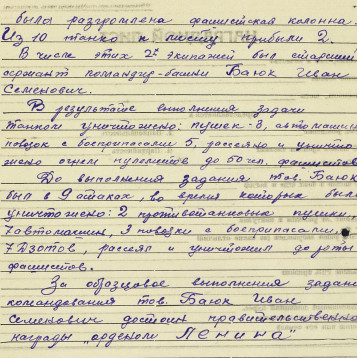 была разгромлена фашистская колонна.
Из 10 танков к месту прибыли 2.
В числе этих 2х экипажей был старший
сержант командир-башни Баюк Иван
Семенович.
В результате выполнения задачи
танком уничтожено: пушек-3, автомашин
повозок с боеприпасами 5, рассеяно и уничто
жено огнем пулеметов до 50 чл. фашистов
До выполнения задания тов. Баюк
был в 9 атаках, во время которых было
уничтожено: 2 противотанковых пушки,
7 автомашин, 3 повозки с боеприпасами
7 Дзотов, рассеял и уничтожил до роты
фашистов.
За образцовое выполнение задани
командования тов. Баюк Иван
Семенович достоин правительственно
награды "орденом Ленина"